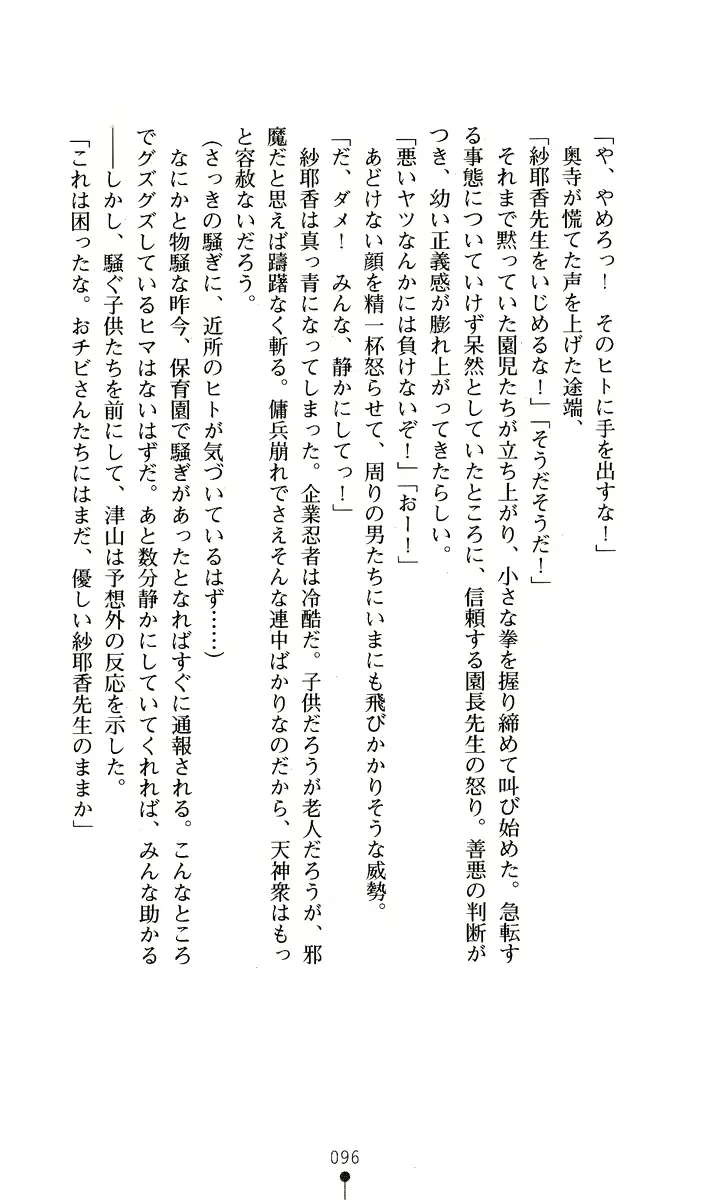 「や、やめろっ！　そのヒトに手を出すな！」
　奥寺が慌てた声を上げた途端、
「紗耶香先生をいじめるな！」「そうだそうだ！」
　それまで黙っていた園児たちが立ち上がり、小さな拳を握り締めて叫び始めた。急転す
る事態についていけず呆然としていたところに、信頼する園長先生の怒り。善悪の判断が
つき、幼い正義感が膨れ上がってきたらしい。
「悪いヤツなんかには負けないぞ！」「おー！」
　あどけない顔を精一杯怒らせて、周りの男たちにいまにも飛びかかりそうな威勢。
「だ、ダメ！　みんな、静かにしてっ！」
　紗耶香は真っ青になってしまった。企業忍者は冷酷だ。子供だろうが老人だろうが、邪
魔だと思えば躊躇なく斬る。傭兵崩れでさえそんな連中ばかりなのだから、天神衆はもっ
と容赦ないだろう。
（さっきの騒ぎに、近所のヒトが気づいているはず……）
　なにかと物騒な昨今、保育園で騒ぎがあったとなればすぐに通報される。こんなところ
でグズグズしているヒマはないはずだ。あと数分静かにしていてくれれば、みんな助かる
――しかし、騒ぐ子供たちを前にして、津山は予想外の反応を示した。
「これは困ったな。おチビさんたちにはまだ、優しい紗耶香先生のままか」
096